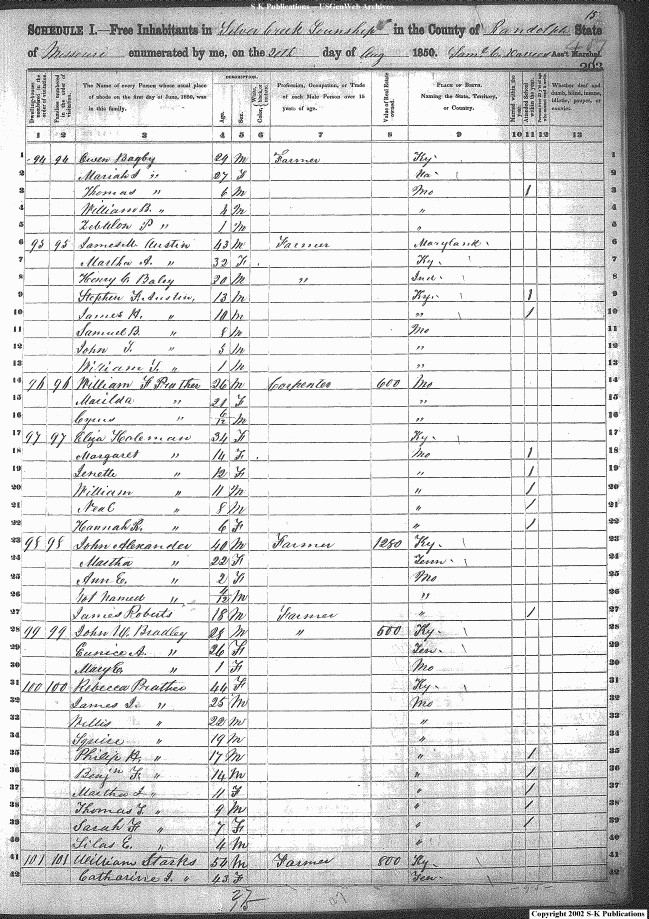 S-K Publications - USGenWeb Archives
15
SCHEDULE I.—Free Inhabitants in Silver Creek Township in the County of Randolph State
of Missouri enumerated by me, on the 20th day of Aug 1850. Saml C Ass't Marshal.
203
Dwelling-houses numbered in the order of visitation.
Families numbered in the order of visitation.
The Name of every Person whose usual place of abode on the first day of June, 1850, was in this family.
DESCRIPTION.
Age.
Sex.
Color
Profession, Occupation, or Trade of each Male Person over 15 years of age.
Value of Real Estate owned.
PLACE OF BIRTH. Naming the State, Territory, or Country.
Married within the year.
Attended School within the year.
Whether deaf and dumb, blind, insane, idiotic, pauper, or convict.
1 2 3 4 5 6 7 8 9 10 11 12 13
1 94 94 Owen Bagby 29 M Farmer Ky 1
2 Mariah I " 27 F Va 2
3 Thomas " 6 M Mo 1 3
4 William B. " 4 M " 4
5 Zebulon P " 1 M " 5
6 95 95 James M. Austin 43 M Farmer Maryland 6
7 Martha A. " 32 F Ky 7
8 Henry C Baley 20 M " Ind 8
9 Stephen F. Austin 13 M Ky 1 9
10 James H. " 10 M " 1 10
11 Samuel B. " 8 M Mo 11
12 John T. " 5 M " 12
13 William T. " 1 M " 13
14 96 96 William F Prather 26 M Carpenter 600 Mo 14
15 Marilda " 21 F " 15
16 Cyrus " 6/12 M " 16
17 97 97 Eliza Holeman 34 F Ky 17
18 Margaret " 14 F Mo 1 18
19 Jenette " 12 F " 1 19
20 William " 11 M " 1 20
21 Neal " 8 M " 1 21
22 Hannah R. " 6 F " 1 22
23 98 98 John Alexander 40 M Farmer 1280 Ky 23
24 Martha " 22 F Tenn 24
25 Ann E. " 2 F Mo 25
26 Not Named " /12 M " 26
27 James Roberts 18 M Farmer " 1 27
28 99 99 John W. Bradley 28 M " 500 Ky 28
29 Eunice A. " 26 F Ten 29
30 Mary E. " 1 F Mo 30
31 100 100 Rebecca Prather 44 F Ky 31
32 James I. " 25 M Mo 32
33 Willis " 22 M " 33
34 Squire " 19 M " 34
35 Philip B. " 17 M " 1 35
36 Benjn F. " 14 M " 1 36
37 Martha I " 11 F " 1 37
38 Thomas T. " 9 M " 1 38
39 Sarah F " 7 F " 1 39
40 Silas E. " 4 M " 40
41 101 101 William Starks 50 M Farmer 800 Ky 41
42 Catharine I. " 43 F Ten 42
Copyright 2002 S-K Publications